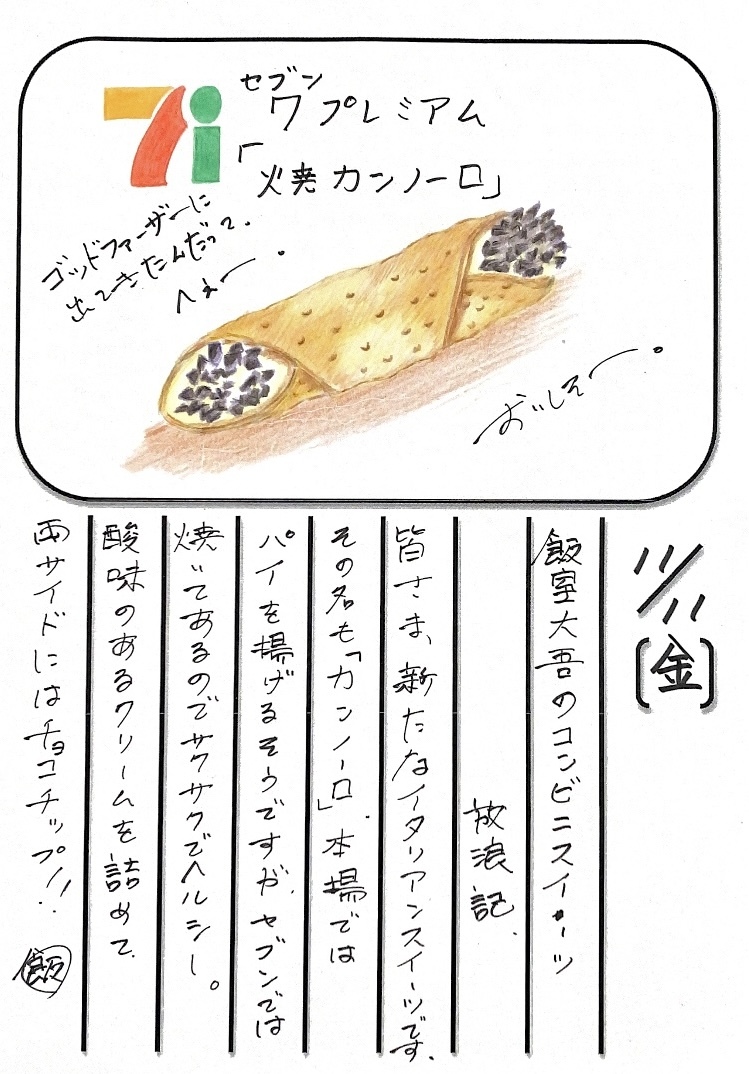 7i
セブン
7プレミアム
「焼カンノーロ」
ゴッドファーザーに
出てきたんだって。
へぇー。
おいしそー。
11/11
(金)
飯室大吾のコンビニスイーツ
放浪記.
皆さま、新たなイタリアンスイーツです.
その名も「カンノーロ」.本場では
パイを揚げるそうですが、セブンでは
焼いてあるのでサクサクでヘルシー。
酸味のあるクリームを詰めて、
両サイドにはチョコチップ!!
飯